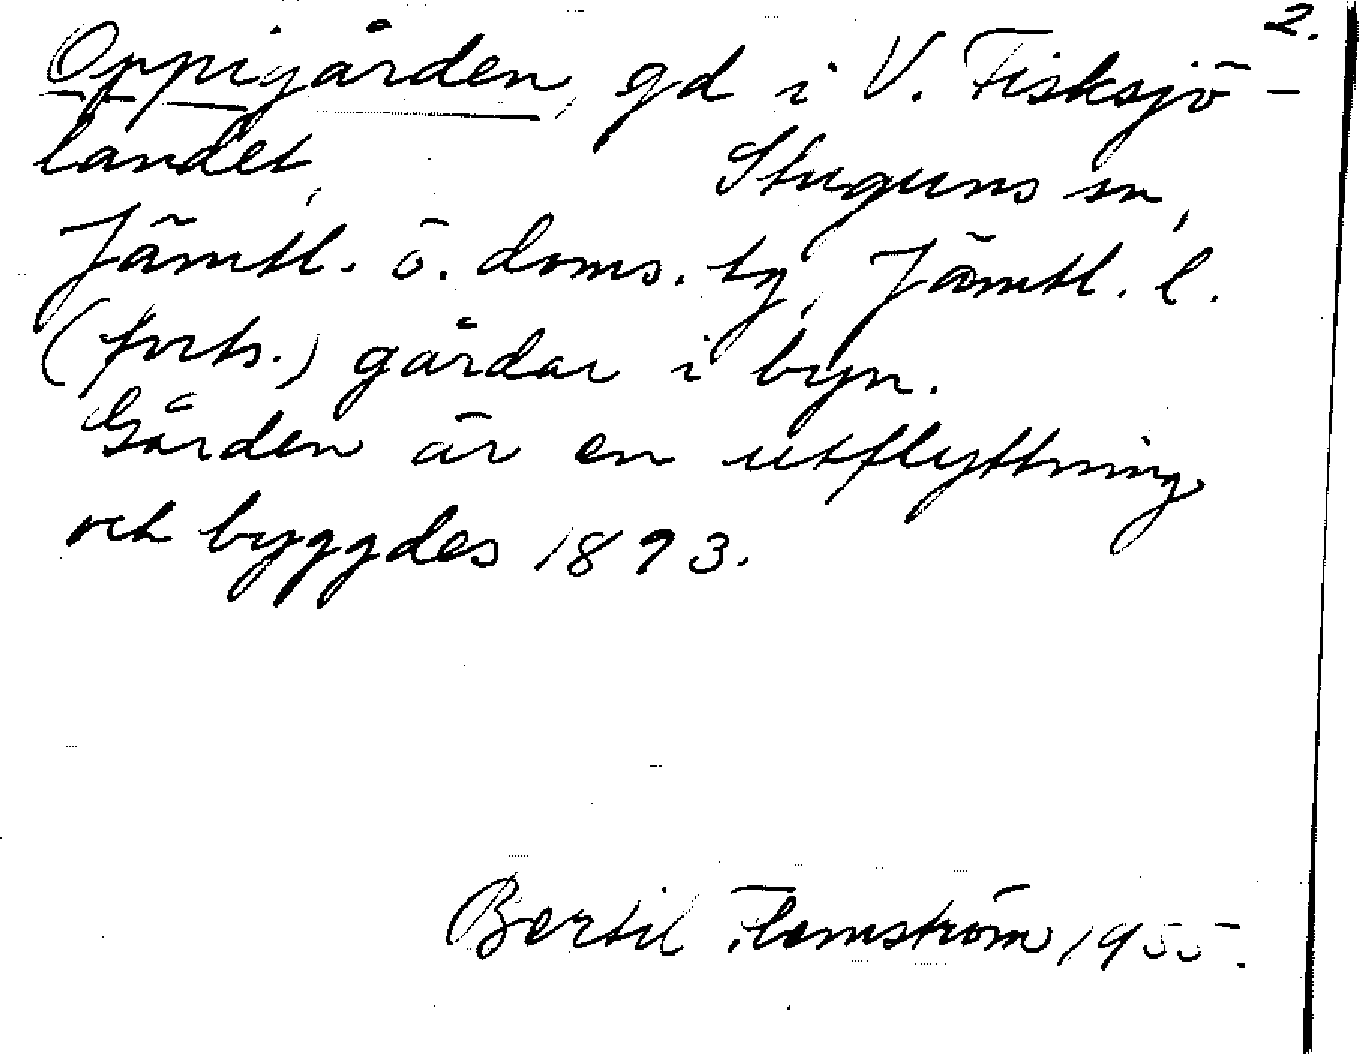 2.
Oppigården, gd i V. Fisksjö-
landet, Stuguns sn,
Jämtl. ö. doms. tg, Jämtl. l.
(forts.) gårdar i byn.
Gården är en utflyttning
och byggdes 1893.
Bertil Flemström 1955.